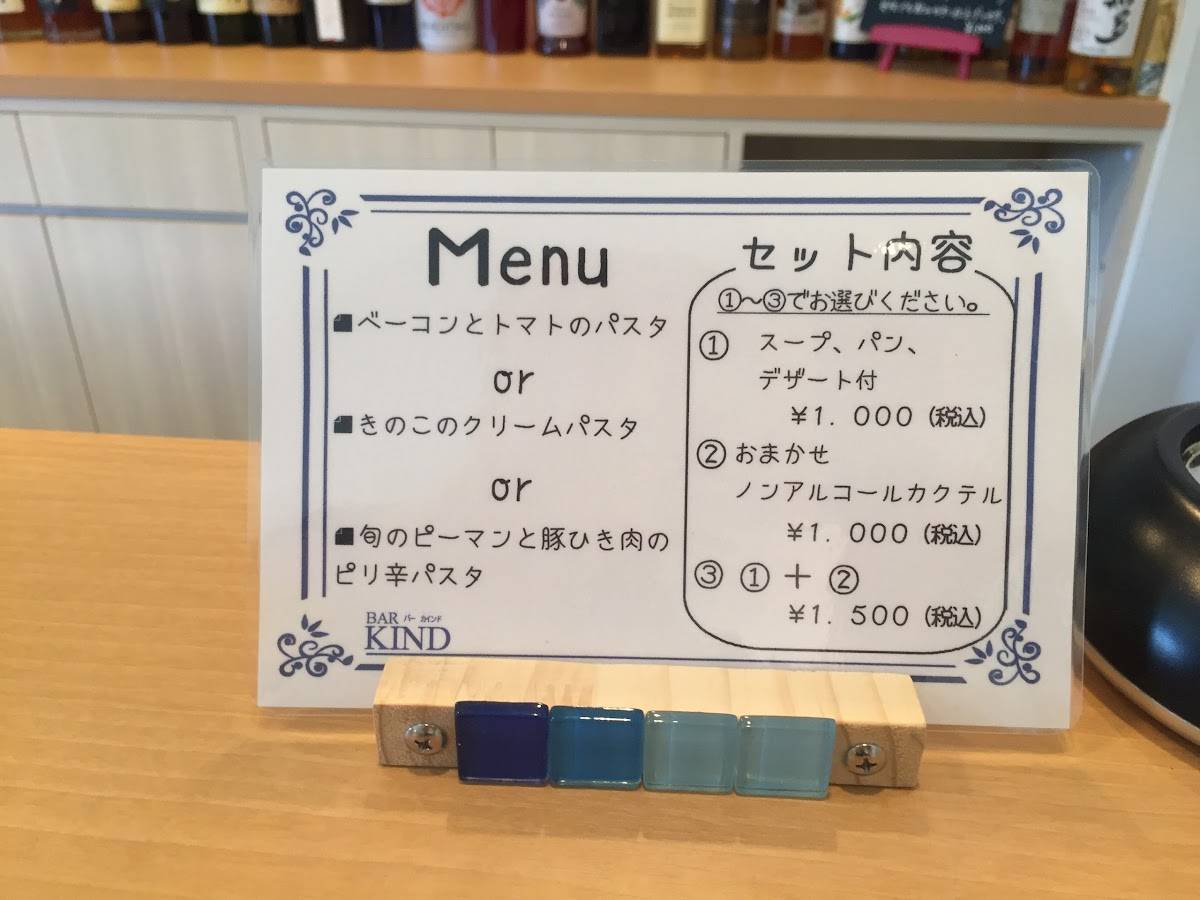 Menu
■ベーコンとトマトのパスタ
or
■きのこのクリームパスタ
or
■旬のピーマンと豚ひき肉の
ピリ辛パスタ
BAR バー カインド
KIND
セット内容
①～③でお選びください。
① スープ、パン、
デザート付
¥1.000(税込)
② おまかせ
ノンアルコールカクテル
¥1.000(税込)
③ ①＋②
¥1.500(税込)